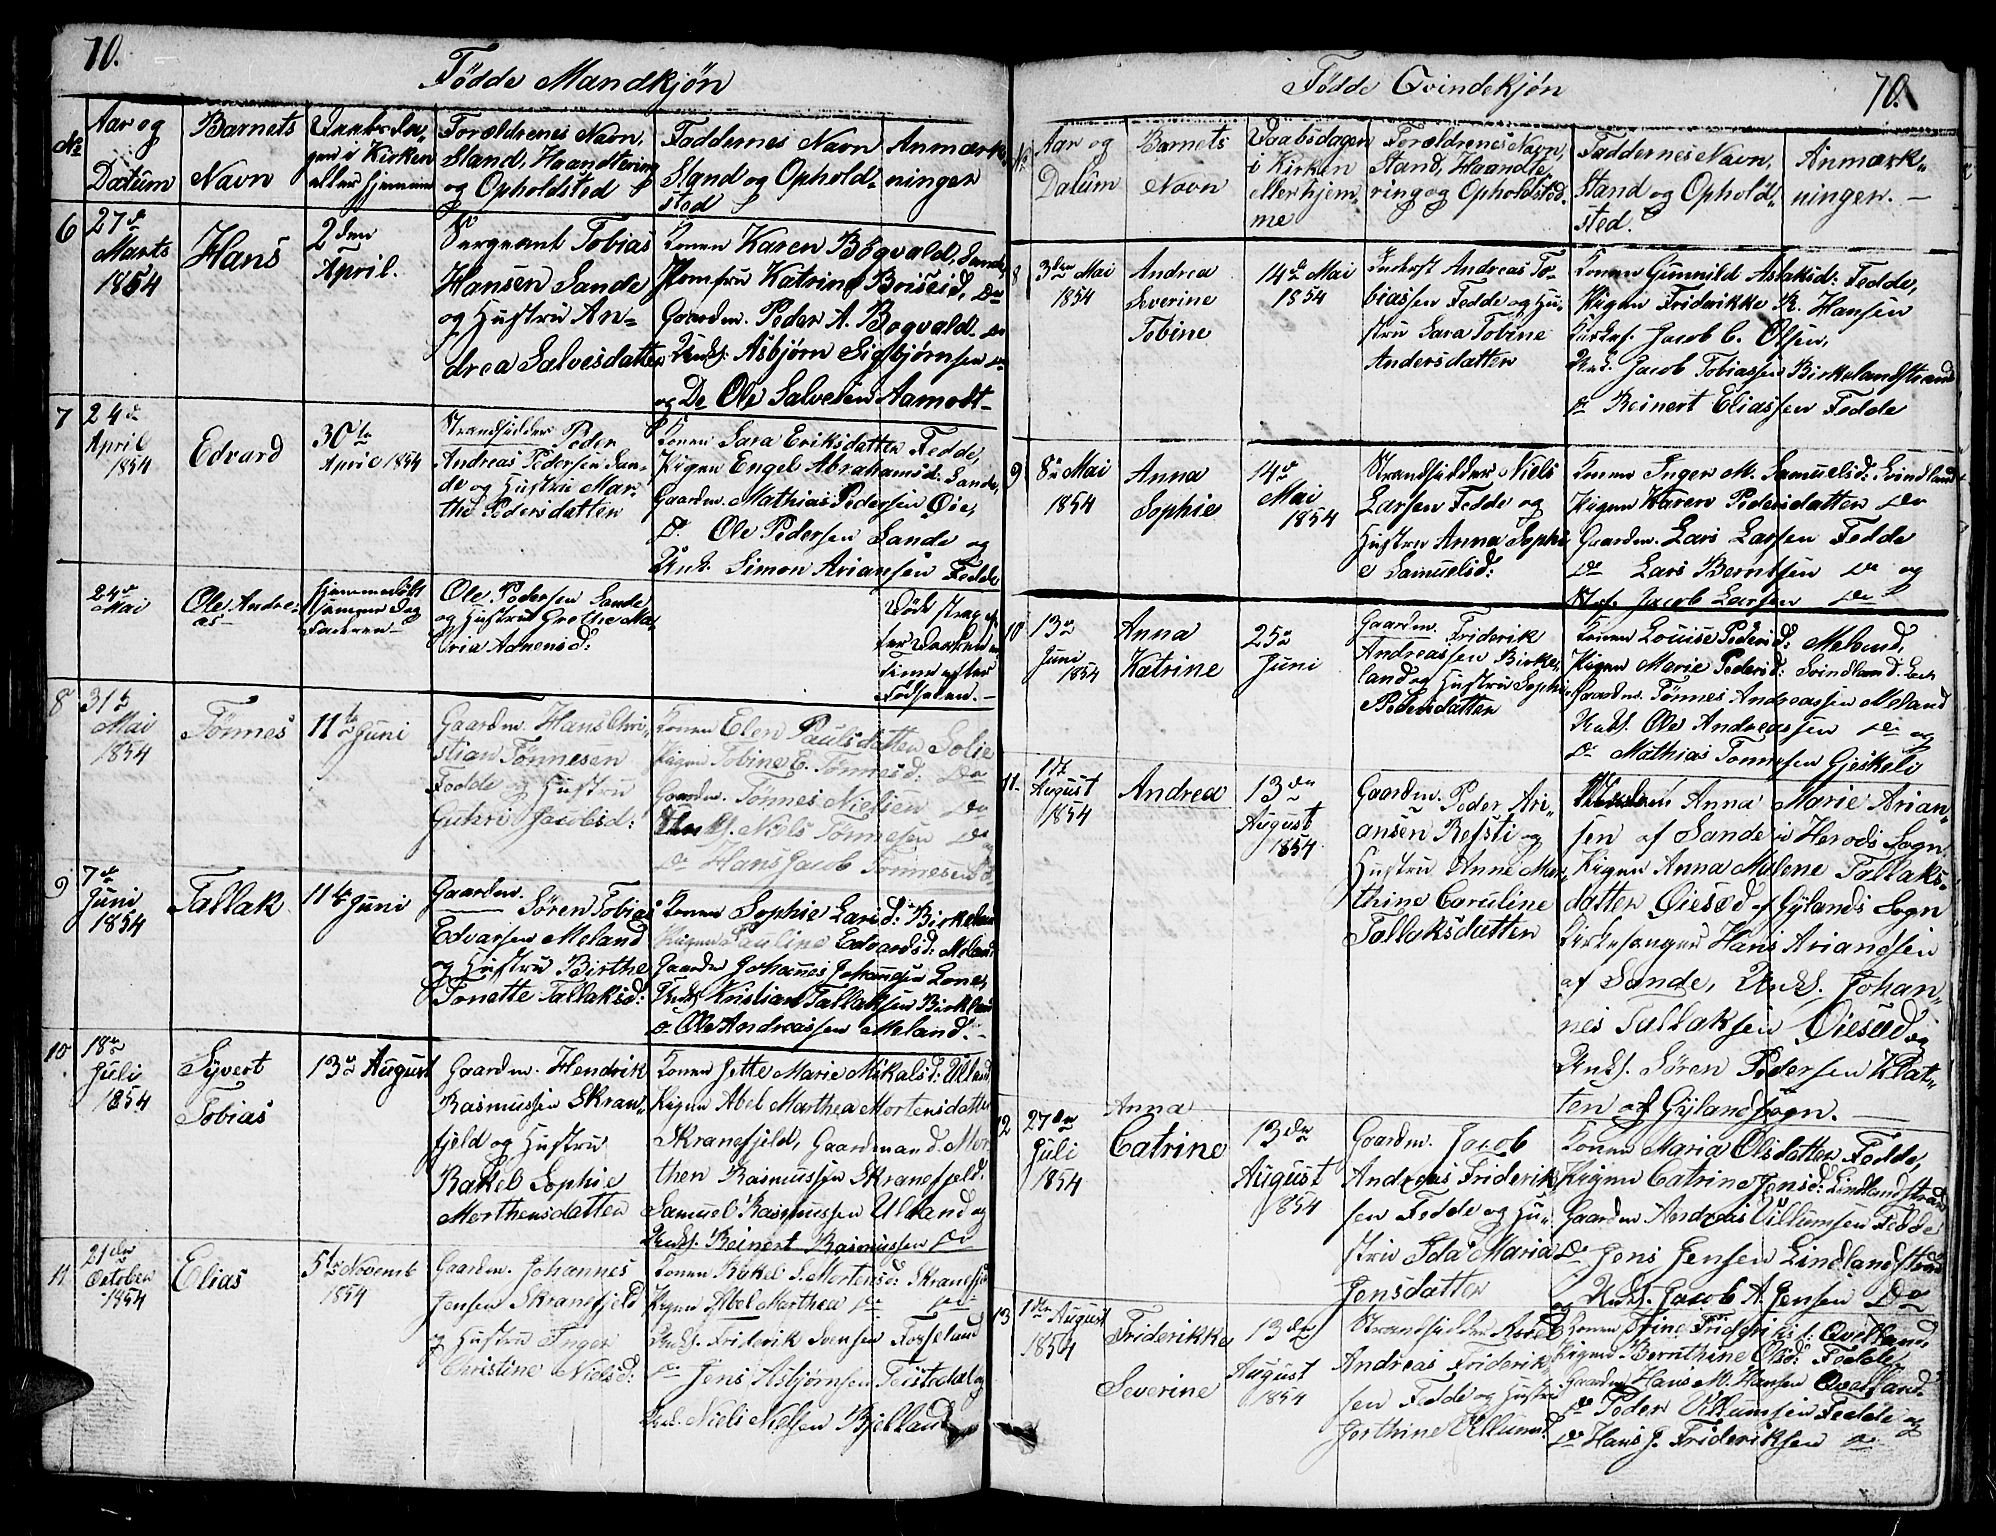 70.
Fødde Mandkjøn
No
Aar og
Datum
Barnets
Navn
Daabsda„
gen i Kirken
eller hjemme
Forældrenes Navn,
Stand, Haandtering
og Opholdsted
Faddernes Navn
Stand og Ophold„
sted
Anmærk„
ninger
6
27de
Marts
1854
Hans
2den
April.
Sergeant Tobias
Hansen Sande
og Hustru An„
drea Salvesdatter
Konen Karen Bøgvald, Sande,
Jomfru Katrine Briseid, Do
Gaardm. Peder A. Bøgvald. Do
Unk. Asbjørn Sigbjørnsen Do
og Do Ole Salvesen Aamodt
7
24de
April
1854
Edvard
30te
April 1854
Strandsidder Peder
Andreas Pedersen San„
de og Hustru Mar„
the Pedersdatter
Konen Sara Eriksdatter Fedde,
Pigen Engel Abrahamsd: Sande,
Gaardm. Mathias Pedersen Øie,
Do. Ole Pedersen Sande og
Unk. Simon Ariansen Fedde
24de
Mai
Ole Andre„
as
Hjemmedøbt
samme Dag
Faderen
Ole Pedersen Sande
og Hustru Grethe Ma„
ria Adnensd:
Død strax ef
ter Daaben
Timer efter
Fødselen.
8
31te
Mai
1854
Tønnes
11te Juni
Gaardm. Hans Chri„
stian Tønnesen
Fedde og Hustru
Guhri Jacobsd:
Konen Elen Paulsdatter Solie
Pigen Tobine E. Tønnesd: Do
Gaardm. Tønnes Nielsen Do
Unk. Niels Tønnesen Do
Do Hans Jacob Tønnesen Do
9
7de
Juni
1854
Tallak
11te Juni
Gaardm.
Søren Tobias
Edvarsen Meland
og Hustru Birthe
Tonette Tallaksd:
Konen Sophie Larsd: Birkeland
Pigen Pauline Edvardsd: Meland
Gaardm Johannes Johannesen Lone,
Unk. Kristian Tallaksen Birkland
Do. Ole Andreassen Meland.
10
18de
Juli
1854
Syvert
Tobias
13de August
Gaardm. Hendrik
Rasmussen Skran„
fjeld og Hustru
Rakel Sophie
Morthensdatter
Konen Jette Marie Mikalsd: Uland
Pigen Abel Marthea Mortensdatter
Skranefjeld, Gaardmand. Mor
then Rasmussen Skranefjeld.
Samuel Rasmussen Uland og
Unk. Reinert Rasmussen Do
11
21de
October
1854
Elias
5te Novemb
1854
Gaardm. Johannes
Jensen Skranefjeld
og Hustru Inger
Christine Nielsd:
Konen Rakel S. Mortensd: Skranefj
Pigen Abel Marthea Do Do
Unk. Friderik Svensen Fosseland
Do Jens Asbjørnsen Teistedal og
Unk. Niels Nielsen Bjelland
Fødde Qvindekjøn
70.
No
Aar og
Datum
Barnets
Navn
Daabsdagen
i Kirken
eller hjem„
me
Forældrenes Navn,
Stand, Haandte„
ring og Opholdsted
Faddernes Navn,
Stand og Ophold„
sted.
Anmærk„
ninger.
8
3die Mai
1854
Andrea
Severine
Tobine
14de Mai
1854
Inderst Andreas To„
biassen Fedde og Hu„
stru Sara Tobine
Andersdatter
Konen Gunnild Aslaksd: Fedde,
Pigen Friderikke R. Hansen
Kirkes. Jacob C. Olsen,
Unk. Jacob Tobiassen Birkelandstrand
Do Reinert Eliassen Fedde
9
8de Mai
1854
Anna
Sophie
14de
Mai
1854
Strandsidder Niels
Larsen Fedde og
Hustru Anna Sophi
e Samuelsd:
Konen Inger M. Samuelsd: Svindland
Pigen Karen Pedersdatter Do
Gaardm. Lars Larsen Fedde
Do Lars Berntsen Do og
Unk. Jacob Larsen Do
10
13de
Juni
1854
Anna
Katrine
25de
Juni
Gaardm. Friderik
Andreassen Birke„
land og Hustru Sophie
Pedersdatter
Konen Louise Pedersd: Meland,
Pigen Marie Pedersd: Svindland.
Gaardm. Tønnes Andreassen Meland
Unk. Ole Andreassen Do og
Do Mathias Tønnesen Gjeskeli
11.
1te
August
1854
Andrea
13de
August
1854
Gaardm. Peder Ari„
ansen Refsti og
Hustru Anne Mar„
thine Caruline
Tallaksdatter
Anna Marie Arian„
sen af Sande i Herods Sogn
Pigen Anna Malene Tallaks„
datter Øiesød af Gylands Sogn
Kirkesanger Hans Ariandsen
af Sande, Unk. Johan„
nes Tallaksen Øiesød og
Unk. Søren Pedersen Klat„
ten af Gylands Sogn.
12
27de
Juli
1854
Anna
Catrine
13de
August
1854
Gaardm. Jacob
Andreas Friderik
sen Fedde og Hu„
stru Ida Maria
Jensdatter
Konen Maria Olsdatter Fedde,
Pigen Catrine Jensd: Lindlandstrand
Gaardm Andreas Villumsen Fedde
Do Jens Jensen Lindlandstrand
og Unk. Jacob A. Jensen Do
13
1de August
1854
Friderikke
Severine
13de
August
1854
Strandsidder Axel
Andreas Friderik„
sen Fedde og Hustru
Jorthine Villumsd.
Konen Trine Frideriksd: Qvelland,
Pigen Bernthine Olsd: Fedde,
Gaardm Hans M. Hansen Qvelland
Do Peder Villumsen Fedde og
Do Hans J. Frideriksen Do